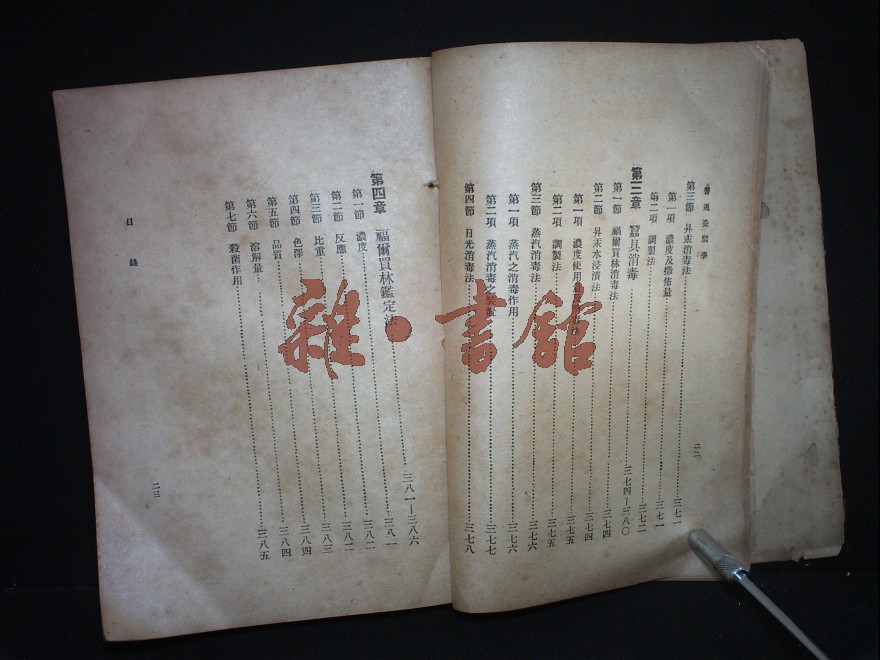 普通養蠶學
第三節 昇汞消毒法……三七一
第一項 濃度及撒佈量……三七一
第二項 調製法……三七二
第三章 蠶具消毒……三七四—三八〇
第一節 福爾買林消毒法……三七四
第二節 昇汞水浸漬法……三七四
第一項 濃度使用量……三七五
第二項 調製法……三七五
第三節 蒸汽消毒法……三七六
第一項 蒸汽之消毒作用……三七六
第二項 蒸汽消毒之裝置……三七七
第四節 日光消毒法……三七八
二二
第四章 福爾買林鑑定法……三八一—三八六
第一節 濃度……三八一
第二節 反應……三八二
第三節 比重……三八二
第四節 色澤……三八三
第五節 品質……三八四
第六節 溶解量……三八四
第七節 殺菌作用……三八五
目錄
二三
雜·書館